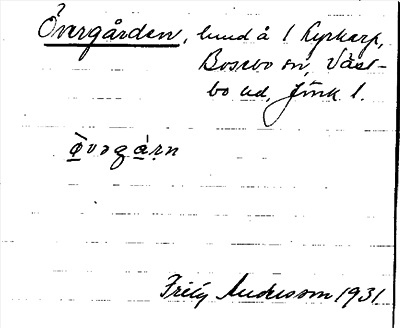 Övergården, lund å 1 Kyrkarp,
Bosebo sn, Väst-
bo hd, Jönk l.
Fritz Andersson 1931